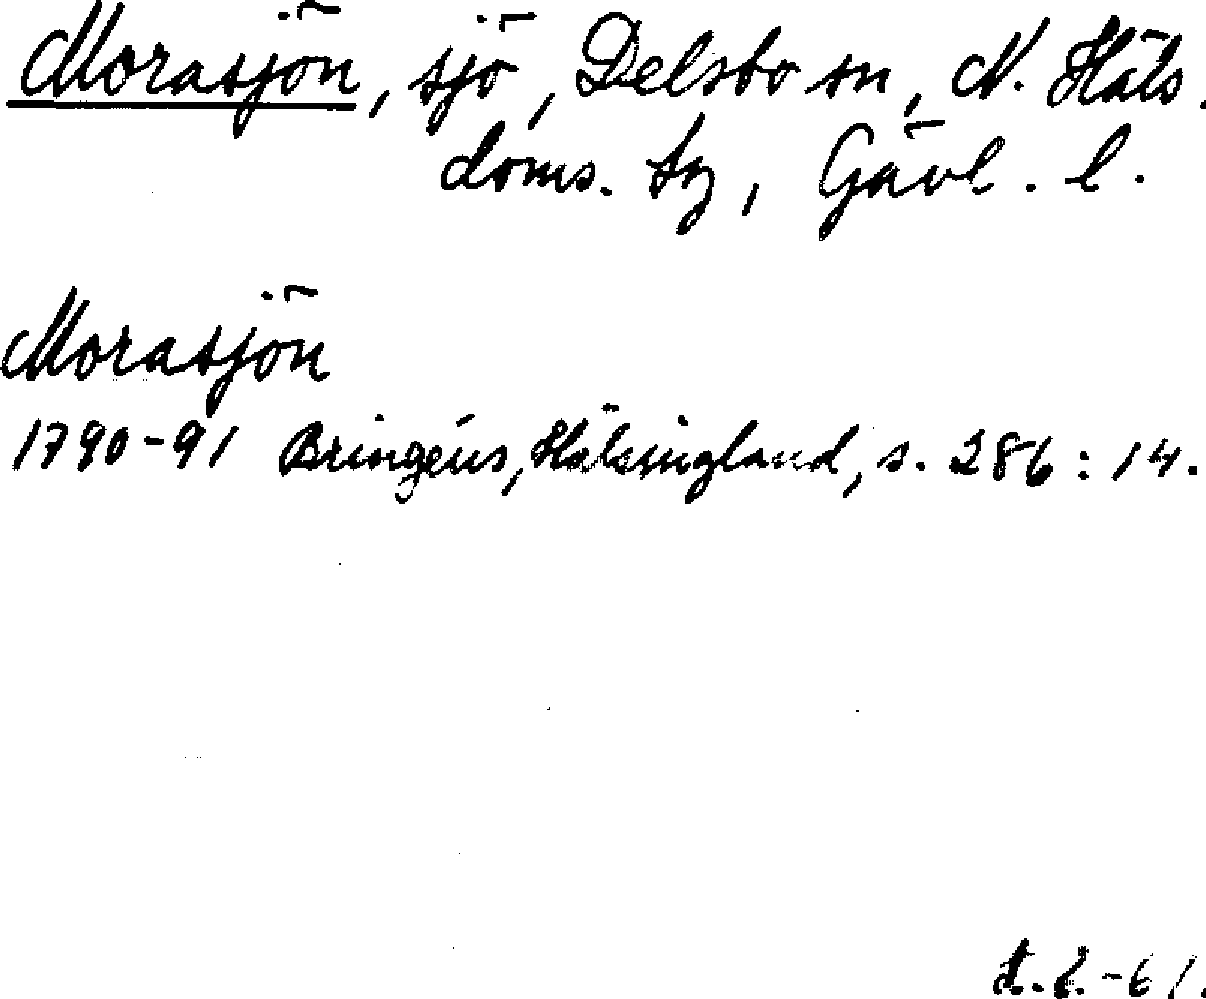 Morasjön, sjö, Delsbo sn, N. Häls.
doms. tg, Gävl. l.
Morasjön
1790-91 Bringéus, Hälsingland, s. 286:14.
-61.